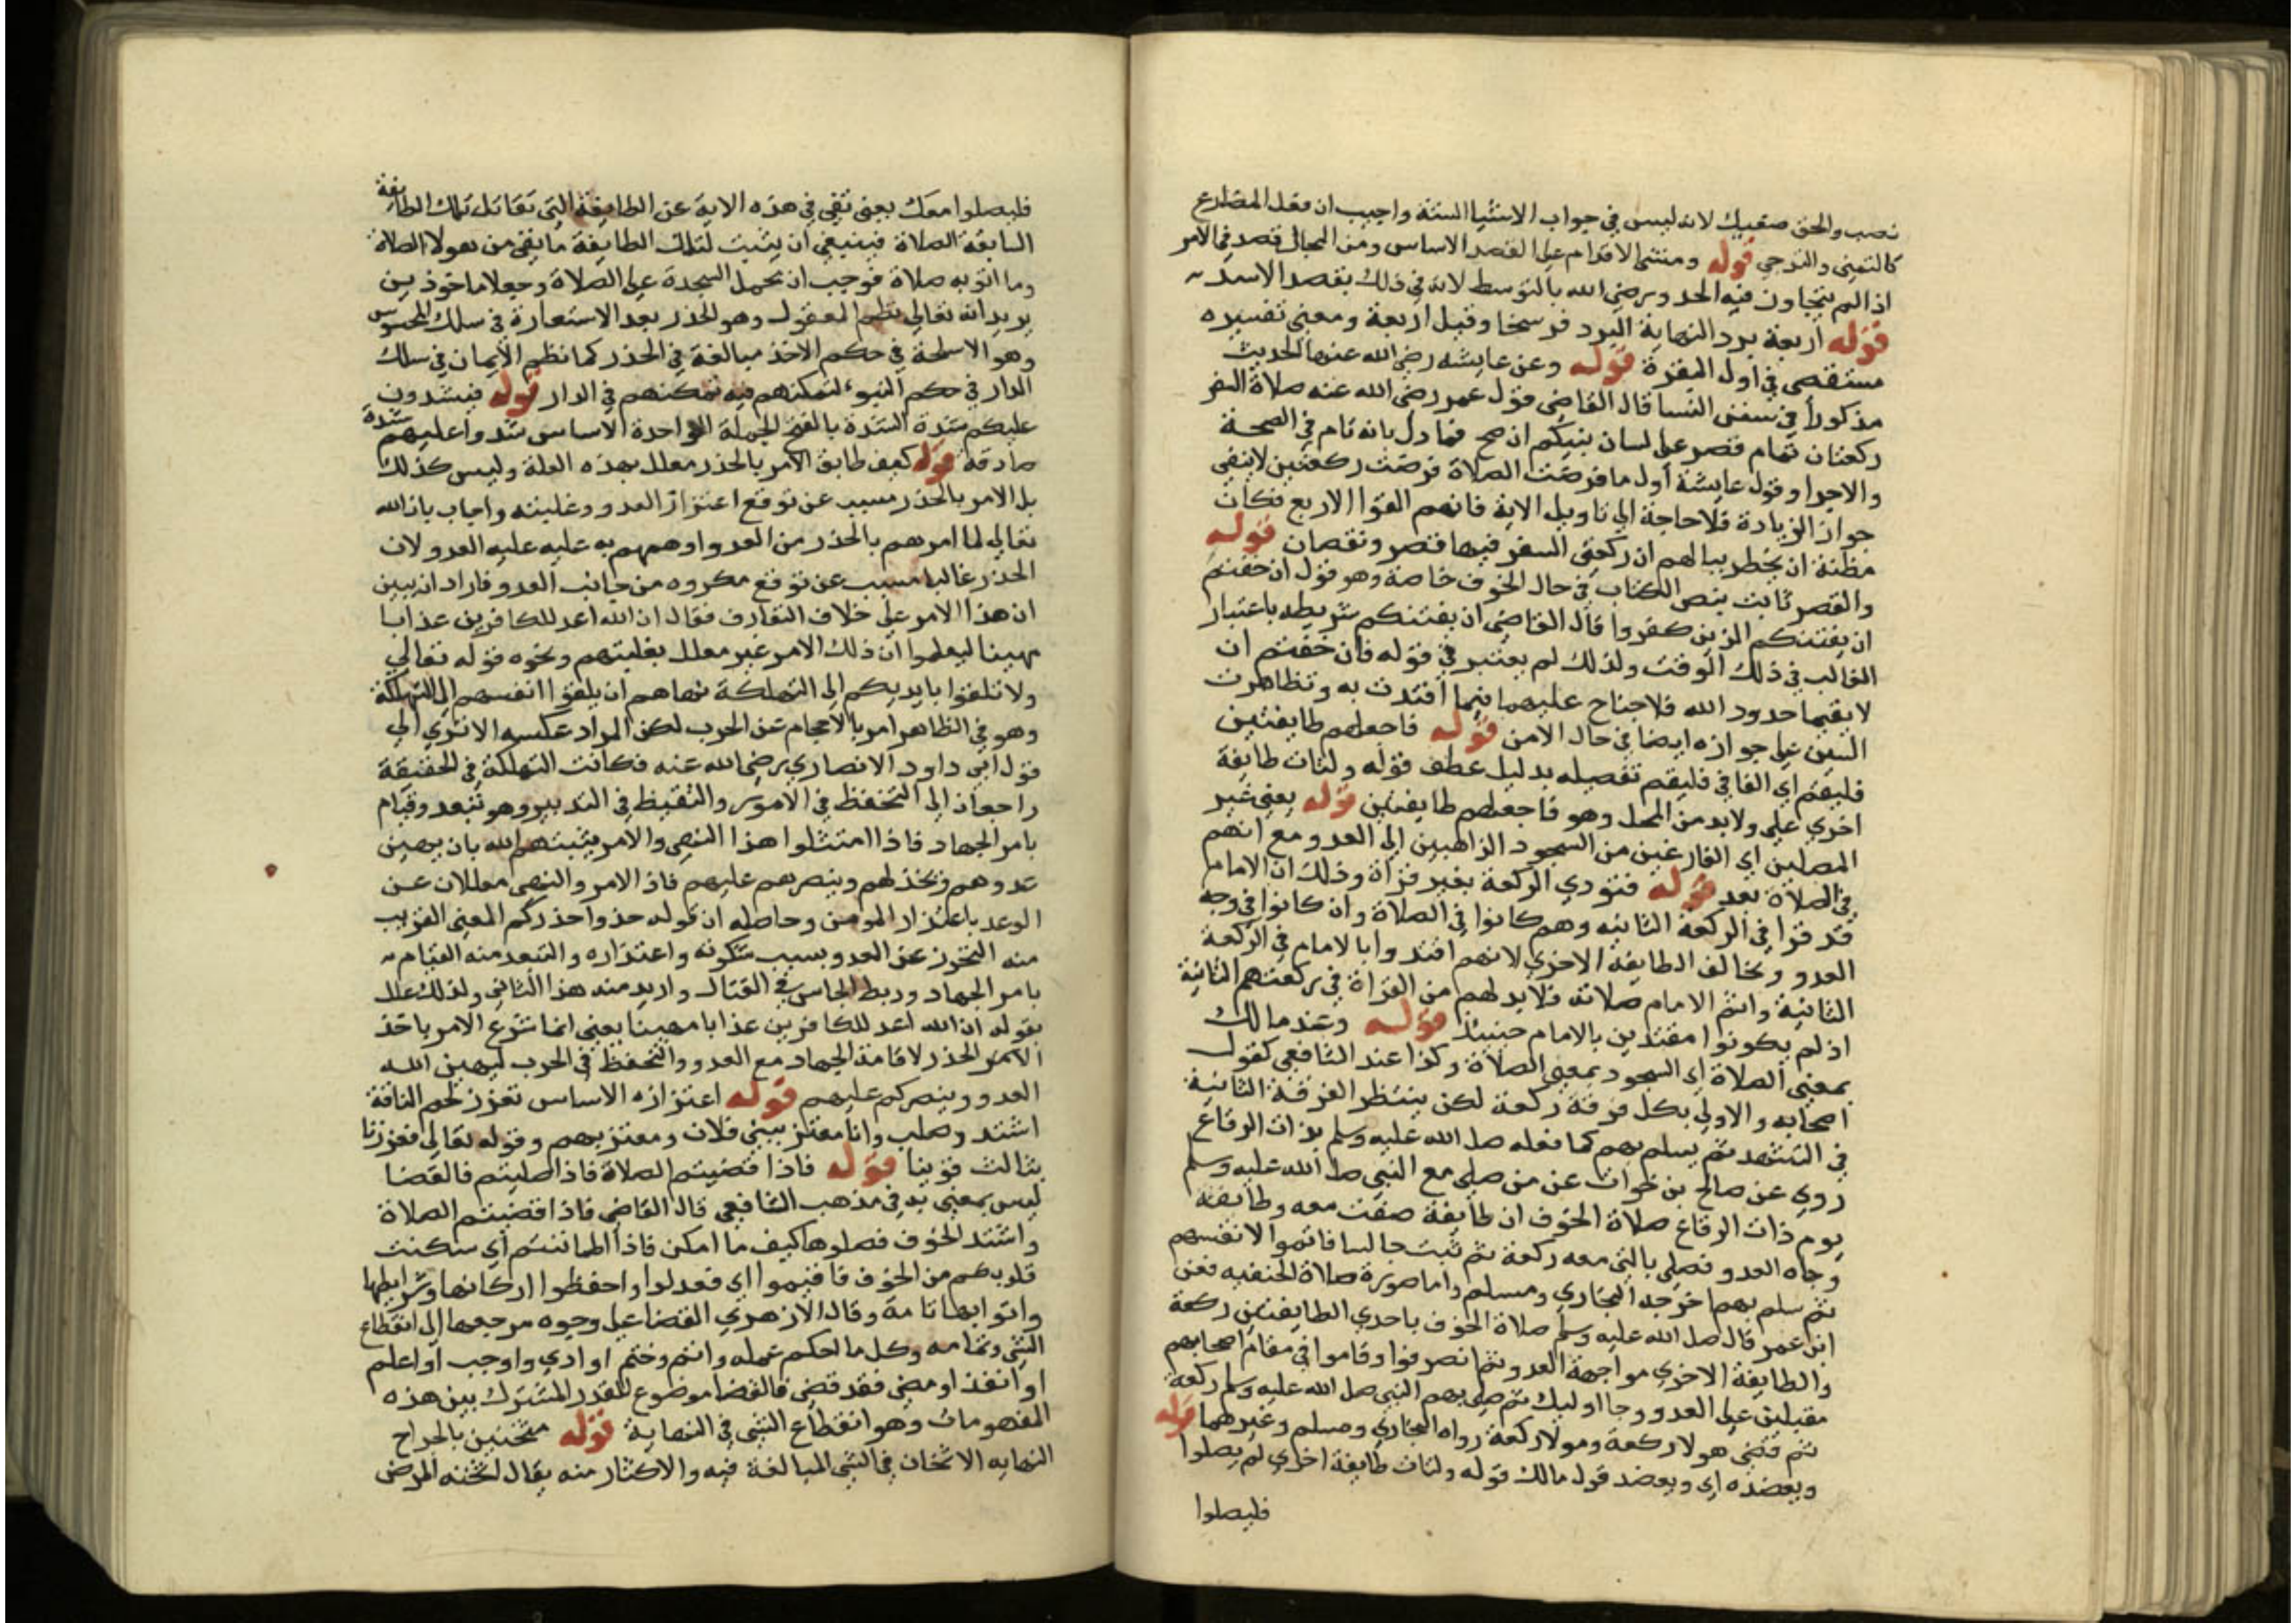 نصب والحق صفيك لانه ليس في جواب الاشيا الستة واجيب ان فعل المضارع
كالتمني والترجي قوله ومنتهى الاقدام على القصد الاساس ومن المجاز قصد في الامر
اذا لم يتجاوز فيه الحد ورضي الله بالتوسط لانه في ذلك يقصد الاسد
قوله اربعة برد النهاية البرد فرسخا وقيل اربعة ومعنى تفسيره
مستقصى في اول البقرة قوله وعن عايشه رضي الله عنها الحديث
مذكورا في سنن النسا قال القاضي قول عمر رضي الله عنه صلاة السفر
ركعتان تمام قصر على لسان نبيكم ان صح فما دل بانه تام في الصحة
والاجزا وقول عايشة اول ما فرضت الصلاة فرضت ركعتين لا ينفي
جواز الزيادة فلا حاجة الى تاويل الاية فانهم الفوا الاربع فكان
مظنة ان يخطر ببالهم ان ركعتي السفر فيها قصر ونقصان قوله
والقصر ثابت بنص الكتاب في حال الخوف خاصة وهو قول ان خفتم
ان يفتنكم الذين كفروا قال القاضي ان يفتنكم شريطه باعتبار
الغالب في ذلك الوقت ولذلك لم يعتبر في قوله فان خفتم ان
لا يقيما حدود الله فلا جناح عليهما فيما افتدت به وتظاهرت
السنن على جوازه ايضا في حال الامن قوله فاجعلهم طايفتين
فليقم اي الفا في فليقم تفصيله بدليل عطف قوله ولتات طايفة
اخرى على ولا بد من المحل وهو فاجعلهم طايفتين قوله يعني غير
المصلين اي الفارغين من السجود الذاهبين الى العدو مع انهم
في الصلاة بعد قوله فتودي الركعة بغير قراة وذلك ان الامام
قد قرا في الركعة الثانيه وهم كانوا في الصلاة وان كانوا في وجه
العدو ويخالف الطايفة الاخرى لانهم اقتدوا بالامام في الركعة
الثانية واتم الامام صلاته فلا بد لهم من القراة في ركعتهم الثانية
اذ لم يكونوا مقتدين بالامام حينيذ قوله وعند مالك
بمعنى الصلاة اي السجود بمعنى الصلاة وكذا عند الشافعي كقول
اصحابه والاولى بكل فرقة ركعة لكن ينتظر الفرقة الثانية
في التشهد ثم يسلم بهم كما فعله صلى الله عليه وسلم بذات الرقاع
روي عن صالح بن خوات عن من صلى مع النبي صلى الله عليه وسلم
يوم ذات الرقاع صلاة الخوف ان طايفة صفت معه وطايفة
وجاه العدو فصلى بالتي معه ركعة ثم ثبت جالسا فاتموا لانفسهم
ثم سلم بهم اخرجه البخاري ومسلم واما صورة صلاة الحنفيه فعن
ابن عمر قال صلى الله عليه وسلم صلاة الخوف باحدى الطايفتين ركعة
والطايفة الاخرى مواجهة العدو ثم انصرفوا وقاموا في مقام اصحابهم
مقبلين على العدو وجا اوليك ثم صلى بهم النبي صلى الله عليه وسلم ركعة
ثم قضى هولا ركعة وهولا ركعة رواه البخاري ومسلم وغيرهما قوله
ويعضده اي ويعضد قول مالك قوله ولتات طايفة اخرى لم يصلوا
فليصلوا
فليصلوا معك يعني نفي في هذه الاية عن الطايفة التي تقاتل تلك الطايفة
السابقة الصلاة فينبغي ان يثبت لتلك الطايفة ما نفي من هولا الصلاة
وما اتو به صلاة فوجب ان تحمل السجدة على الصلاة وجعلا ماخوذين
يريد انه تعالى نظم المعقول وهو الحذر بعد الاستعارة في سلك المحسوس
وهو الاسلحة في حكم الاخذ مبالغة في الحذر كما نظم الايمان في سلك
الدار في حكم التبوء لتمكنهم فيه تمكنهم في الدار قوله فيشدون
عليكم شدة الشدة بالفتح الجملة الواحدة الاساس شدوا عليهم شدة
صادقة قوله كيف طابق الامر بالحذر معلل بهذه العلة وليس كذلك
بل الامر بالحذر مسبب عن توقع اعتزاز العدو وغلبته واجاب بان الله
تعالى لما امرهم بالحذر من العدو اوهمهم به عليه عليه العدو لان
الحذر غالبا مسبب عن توقع مكروه من جانب العدو فاراد ان يبين
ان هذا الامر على خلاف التعارف فقال ان الله اعد للكافرين عذابا
مهينا ليعلموا ان ذلك الامر غير معلل بغلبتهم ونحوه قوله تعالى
ولا تلقوا بايديكم الى التهلكة نهاهم ان يلقوا انفسهم الى التهلكة
وهو في الظاهر امر بالاحجام عن الحرب لكن المراد عكسه الا ترى الى
قول ابي داود الانصاري رضي الله عنه فكانت التهلكة في الحقيقة
راجعان الى التحفظ في الامور والتيقظ في التدبير وهو وقيام
بامر الجهاد فاذا امتثلوا هذا النهي والامر يثبتهم الله بان يهين
عدوهم ويخذلهم وينصرهم عليهم فاذ الامر والنهي معللان عن
الوعد باعتزاز المومن وحاصله ان قوله خذوا حذركم المعنى القريب
منه التحرز عن العدو بسبب شكونه واعتذاره والتبعد منه القيام
بامر الجهاد وربط الجاس في القتال واريد منه هذا الثاني ولذلك علل
بقوله ان الله اعد للكافرين عذابا مهينا يعني انما شرع الامر باخذ
الامر الحذر لاقامة الجهاد مع العدو والتحفظ في الحرب ليهين الله
العدو وينصركم عليهم قوله اعتزازه الاساس تعزز لحم الناقة
اشتد وصلب وانا معتز ببني فلان ومعتز بهم وقوله تعالى فعززنا
بثالث قوينا قوله فاذا قضيتم الصلاة فاذا صليتم فالقضا
ليس بمعنى به في مذهب الشافعي قال القاضي فاذا قضيتم الصلاة
واشتد الخوف فصلوها كيف ما امكن فاذا اطماننتم اي سكنت
قلوبكم من الخوف فاقيموا اي فعدلوا واحفظوا اركانها وشرايطها
واتوا بها تامة وقال الازهري القضا على وجوه مرجعها الى انقطاع
الشي وتمامه وكل ما احكم عمله واتم وختم او ادي واوجب او اعلم
او انفذ او مضى فقد قضى فالقضا موضوع للقدر المشترك بين هذه
المفهومات وهو انقطاع الشي في النهاية قوله مثخنين بالجراح
النهايه الاثخان في الشي المبالغة فيه والاكثار منه يقال اثخنه المرض